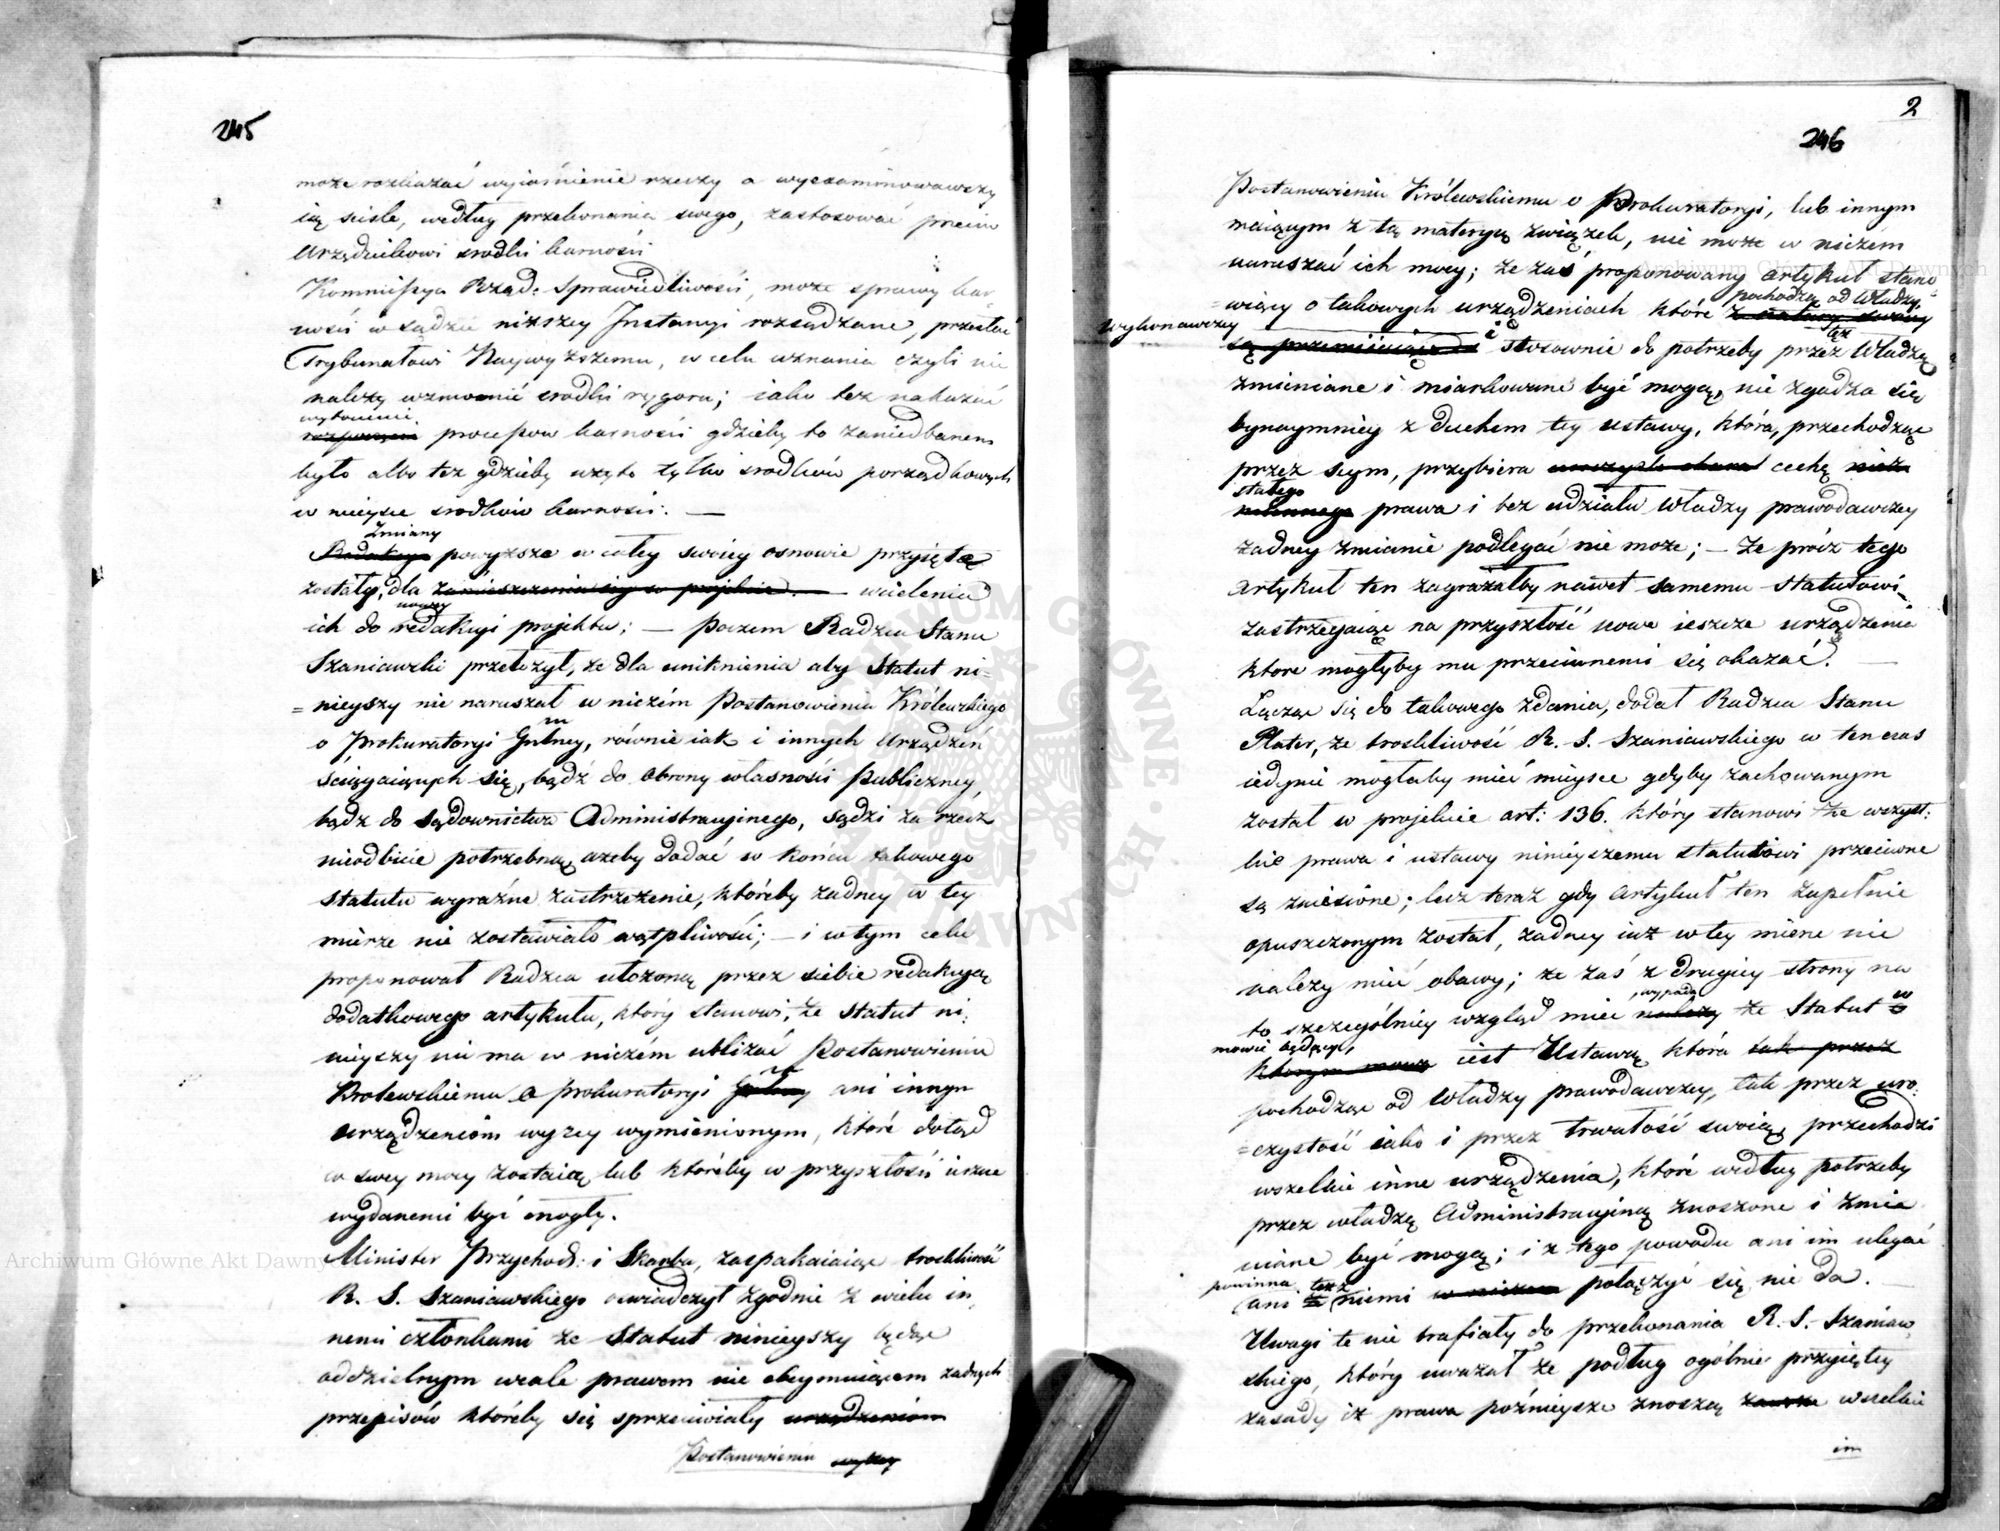 245
może rozkazać wyiaśnienie rzeczy a wyexaminowawszy
ią scisle, według przekonania swego, zastosować przeciw
Urzędnikowi srodki karności
Kommissya Rząd: Sprawiedliwości, może sprawy kar=
ności w Sądzie niższey Instancyi rozsądzane, przesłać
Trybunałowi Naywyższemu, w celu uznania czyli nie
należy wzmocnić srodki rygoru; iako też nakazać
wytoczenie
rozpoczęcie processu karności gdzieby to zaniedbanem
było albo też gdzieby użyto tylko srodków porządkowych
w mieysce srodków karności. —
Zmiany
Redakcye powyższe w całey swoiey osnowie przyięte
zostały, dla zamieszczenia się w projekcie. — wcielenia
nowey
ich do redakcyi projektu; — Poczem Radzca Stanu
Szaniawski przełożył, że dla uniknienia aby Statut ni=
=nieyszy nie naruszał w niczém Postanowienia Królewskiego
o Prokuratoryi Gnlney, równie iak i innych Urządzeń
ściągaiących się, bądź do Obrony własności Publiczney,
bądz do Sądownictwa Administracyinego, sądzi za rzecz
nieodbicie potrzebną, ażeby dodać w końcu takowego
Statutu wyraźne zastrzeżenie, któréby żadney w tey
mierze nie zostawiało wątpliwości; — i w tym celu
proponował Radzca ułożoną przez siebie redakcyą
dodatkowego artykułu, który stanowi, że Statut ni:
nieyszy nie ma w niczém ubliżać Postanowieniu
Królewskiemu o Prokuratoryi Gnlney ani innym
urządzeniom wyzey wymienionym, które dotąd
w swey mocy zostaią lub któréby w przyszłości ieszcze
wydanemi być mogły.
Minister Przychod: i Skarbu, zaspakaiaiąc troskliwość
R. S. Szaniawskiego oświadczył zgodnie z wielu in
nemi członkami że Statut ninieyszy będąc
oddzielnym wcale prawem nie obeymuiącem żadnych
przepisów któréby się sprzeciwiały urządzeniom
Postanowieniu wyżey
2
246
Postanowieniu Królewskiemu o Prokuratoryi, lub innym
maiącym z tą materyą związek, nie może w niczém
naruszać ich mocy; że zaś proponowany artykuł stano
pochodzą od Władzy
=wiący o takowych urządzeniach które z natury swoiey
wykonawczey
są przemiiaiące i stosownie do potrzeby przez też Władzę
zmieniane i miarkowane być mogą, nie zgadza się
bynaymniey z duchem tey ustawy, która, przechodząc
przez seym, przybiera cechę
stałego
prawa i bez udziału Władzy prawodawczey
żadney zmianie podlegać nie może; — że prócz tego
artykuł ten zagrażałby nawet samemu Statutowi
zastrzegaiąc na przyszłość nowe ieszcze urządzenia
które mogłyby mu przeciwnemi się okazać. —
Łącząc się do takowego zdania, dodał Radzca Stanu
Plater, że troskliwość R. S. Szaniawskiego w ten czas
iedynie mogłaby mieć mieysce gdyby zachowanym
został w projekcie art: 136. który stanowi że wszyst:
kie prawa i ustawy ninieyszemu statutowi przeciwne
są zniesione; lecz teraz gdy artykuł ten zupełnie
opuszczonym został, żadney iuż w tey mierze nie
należy mieć obawy; że zaś z drugiey strony na
wypada
to szczególniey wzgląd mieć należy że Statut w
mowie będący,
którym mowa iest Ustawą która tak przez
pochodząc od Władzy prawodawczey, tak przez uro:
=czystość iako i przez trwałość swoią, przechodzi
wszelkie inne urządzenia, które według potrzeby
przez władzę Administracyiną znoszone i zmie
niane być mogą; i z tego powodu ani im ulegać
powinna też z
ani z niemi w niczem połączyć się nie da. —
Uwagi te nie trafiały do przekonania R. S. Szaniaw
skiego, który uważał że podług ogólnie przyiętey
zasady iż prawa późnieysze znoszą zawsze wszelkie
im